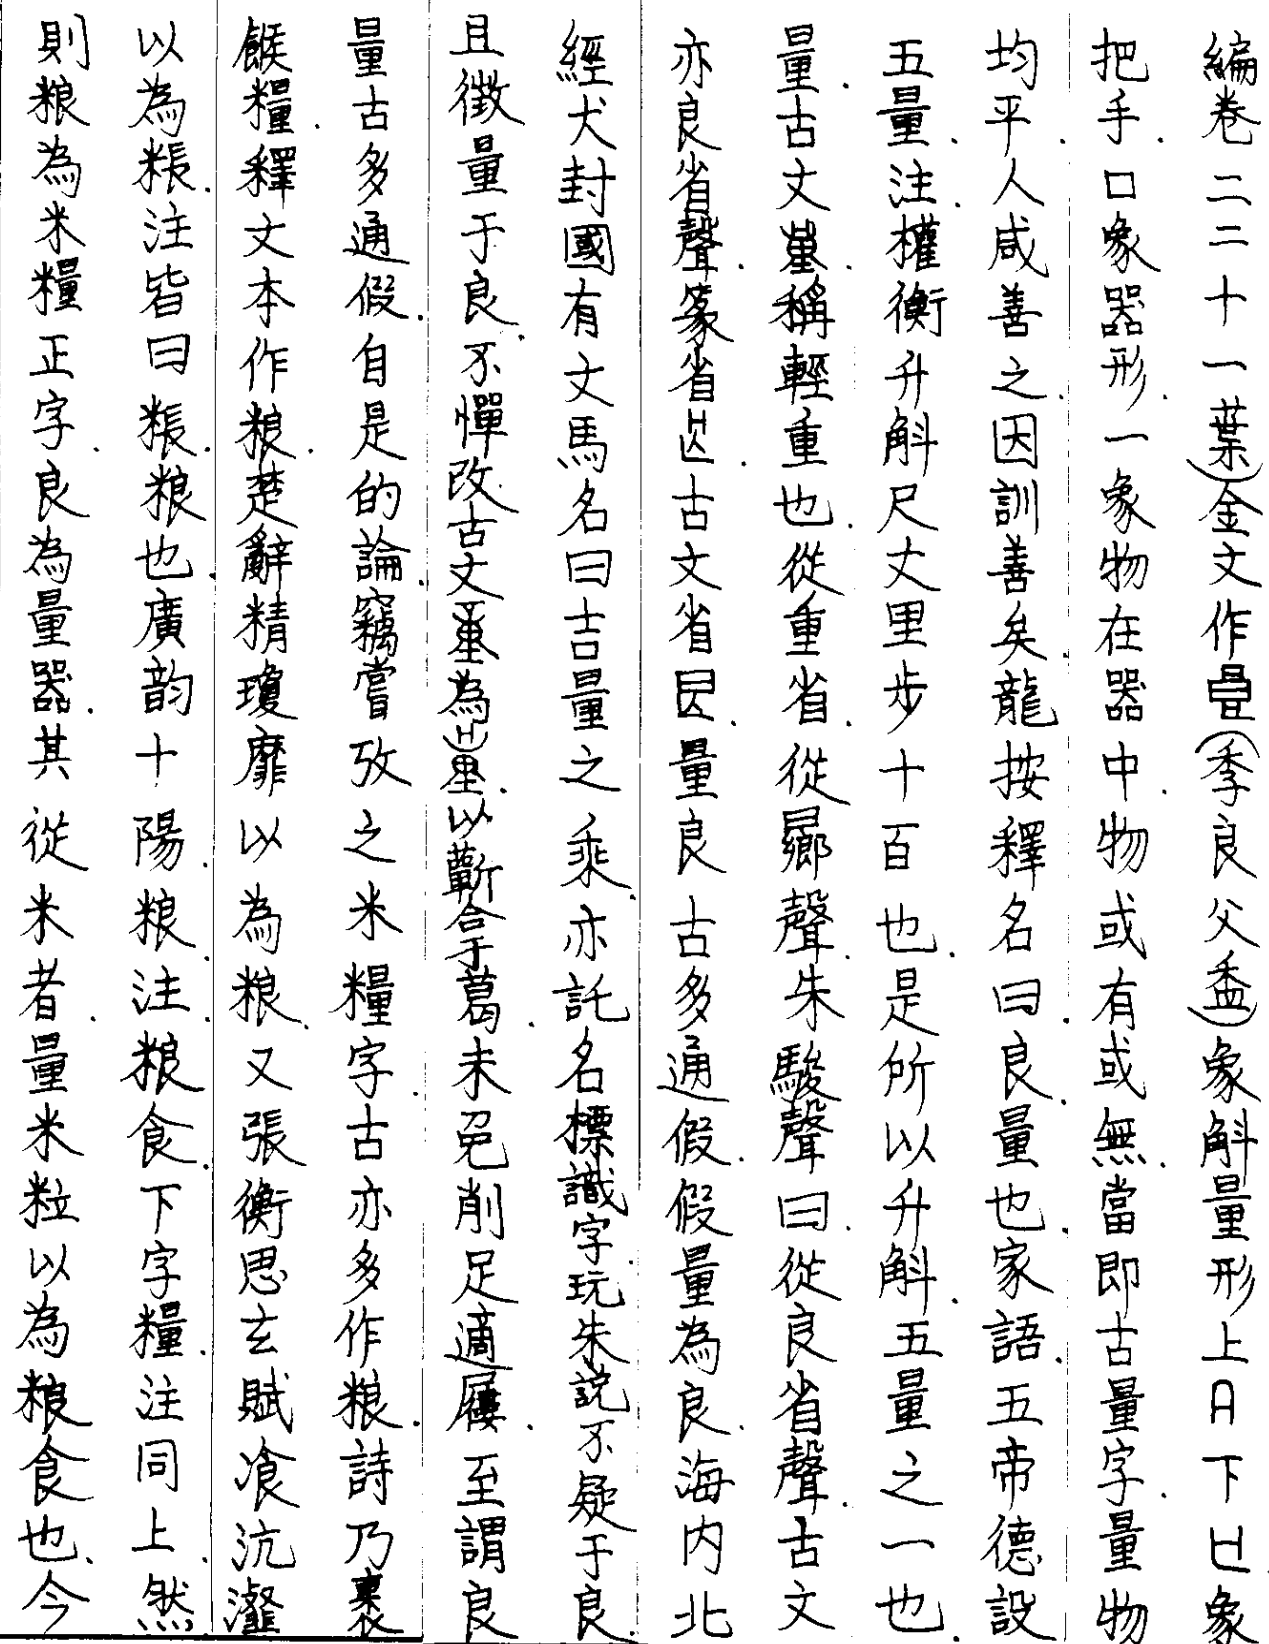 編卷二二十一葉）金文作（季良父盉）象斛量形上下象
把手.口象器形.一象物在器中.物或有或無.當即古量字.量物
均平.人咸善之.因訓善矣.龍按釋名曰.良量也.家語.五帝德設
五量.注.權衡升斛尺丈里步十百也.是所以升斛.五量之一也.
量.古文稱輕重也.從重省.從曏聲.朱駿聲曰.從良省聲.古文
亦良省聲.篆省.古文省.量良古多通假.假量為良.海内北
經犬封國有文馬名曰吉量之乘.亦託名標識字玩朱説不疑于良.
且徵量于良.不憚改古文為.以蘄合于葛.未免削足適屨.至謂良
量古多通假.自是的論.竊嘗攷之米糧字.古亦多作粮.詩乃裹
餱糧.釋文本作粮.楚辭精瓊靡以為粮.又張衡思玄賦飡沆瀣
以為粻.注皆曰粻.粮也.廣韵十陽.粮.注.粮食.下字糧.注同上.然
則粮為米糧正字.良為量器.其從米者.量米粒以為粮食也.今